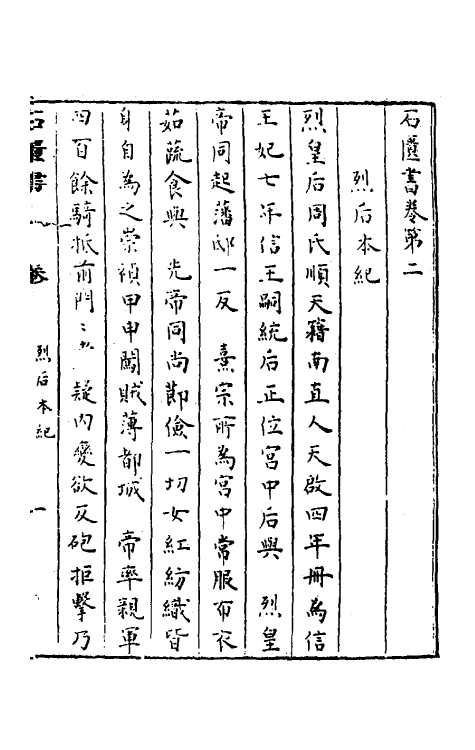 石匱書卷第二
烈后本紀
烈皇后周氏順天籍南直人天啟四年冊為信
王妃七年信王嗣統后正位宮中后與 烈皇
帝同起藩邸一反 熹宗所為宮中常服布衣
茹蔬食與 先帝同尚節儉一切女紅紡織皆
身自為之崇禎甲申闖賊薄都城 帝率親軍
四百餘騎抵前門門 疑內變欲反砲拒擊乃
石匱書 卷 烈后本紀 一